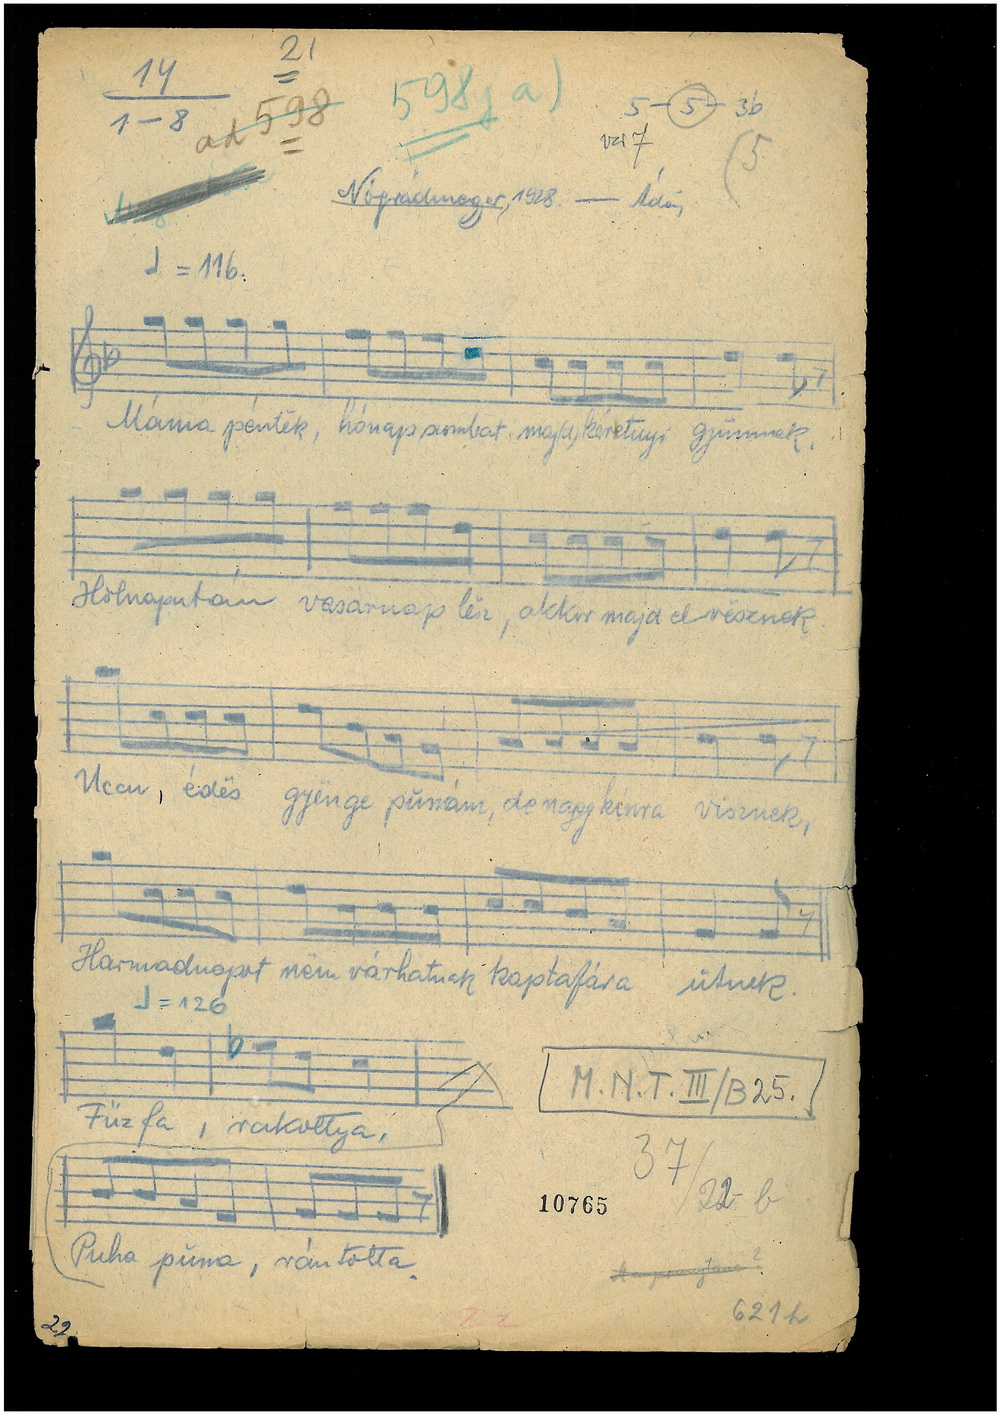 14
1-8
21
ad 598
598j a)
5-5-3b
var 7
(5
Nógrádmegyer, 1928. — Ádám
♩ = 116.
Máma pénték, hónap szombat majd kéretnyi gyünnek,
Hólnapután vasárnap lész, akkor majd el vésznek.
Uccu, édës gyënge pünám, de nagy kínra visznek,
Harmadnapot nëm várhatnak kaptafára ütnek.
♩ = 126
Fűzfa, rakottya,
M.N.T. III/B 25.
Puha püna, rántotta.
37/22 b
10765
621 h
22
22